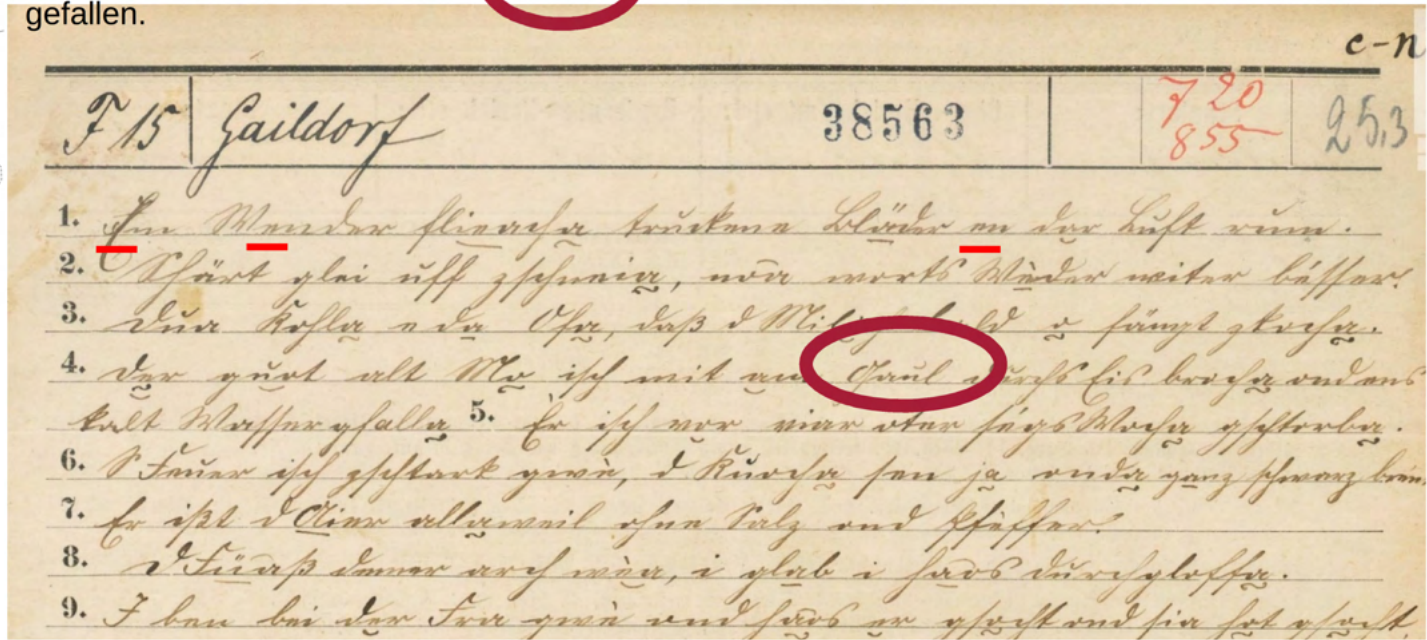 gefallen.
c-n
F 15 Gaildorf 38563 7 20 855 25,3
1. Em Wender flieacha truckene Bläder en dar Luft rum.
2. Shärt glei uff zschneia, nöa worts Wèder witer bésser.
3. Dua Kohla e da Ofa, daß d Mil ld o fängt zkocha.
4. Der guat alt Mo isch mit am Gaul durchs Eis brocha ond ens
kalt Wasser gfalla 5. Er isch vor viar oterségs Wocha gschtorba.
6. S Feuer isch zschtark gwè, d Kuacha sen ja onda ganz schwarz
7. Er ißt d Aier allaweil ohne Salz ond Pfèffer.
8. D Füaß denner arch wèa, i glab i haos durchgloffa.
9. I ben bei der Fra gwè ond haos er gsocht ond sia hot gsocht